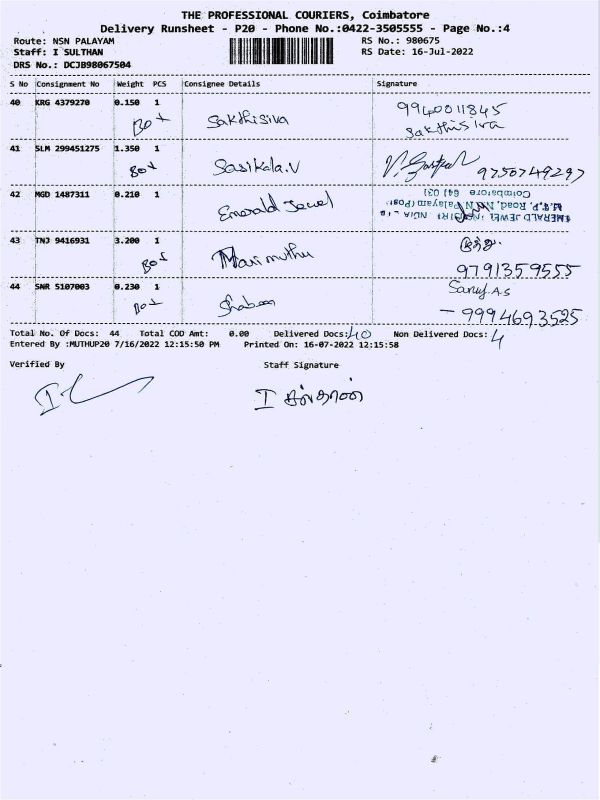 THE PROFESSIONAL COURIERS, Coimbatore
Delivery Runsheet - P20 - Phone No.:0422-3505555 - Page No.:4
Route: NSN PALAYAM RS No.: 980675
Staff: I SULTHAN RS Date: 16-Jul-2022
DRS No.: DCJB98067504
S No Consignment No Weight PCS Consignee Details Signature
40 KRG 4379270 0.150 1 Sakthisiva 9940011845
Box Sakthisiva
41 SLM 299451275 1.350 1
Box Sasikala.V 9750749297
42 MGD 1487311 0.210 1 Emerald Jewel
EMERALD JEWEL INDIA
Coimbatore 641 031
43 TNJ 9416931 3.200 1
Box Marimuthu 9791359555
44 SNR 5107003 0.230 1
Box 9994693525
Total No. Of Docs: 44 Total COD Amt: 0.00 Delivered Docs: 40 Non Delivered Docs: 4
Entered By :MUTHUP20 7/16/2022 12:15:50 PM Printed On: 16-07-2022 12:15:58
Verified By Staff Signature
I சுல்தான்